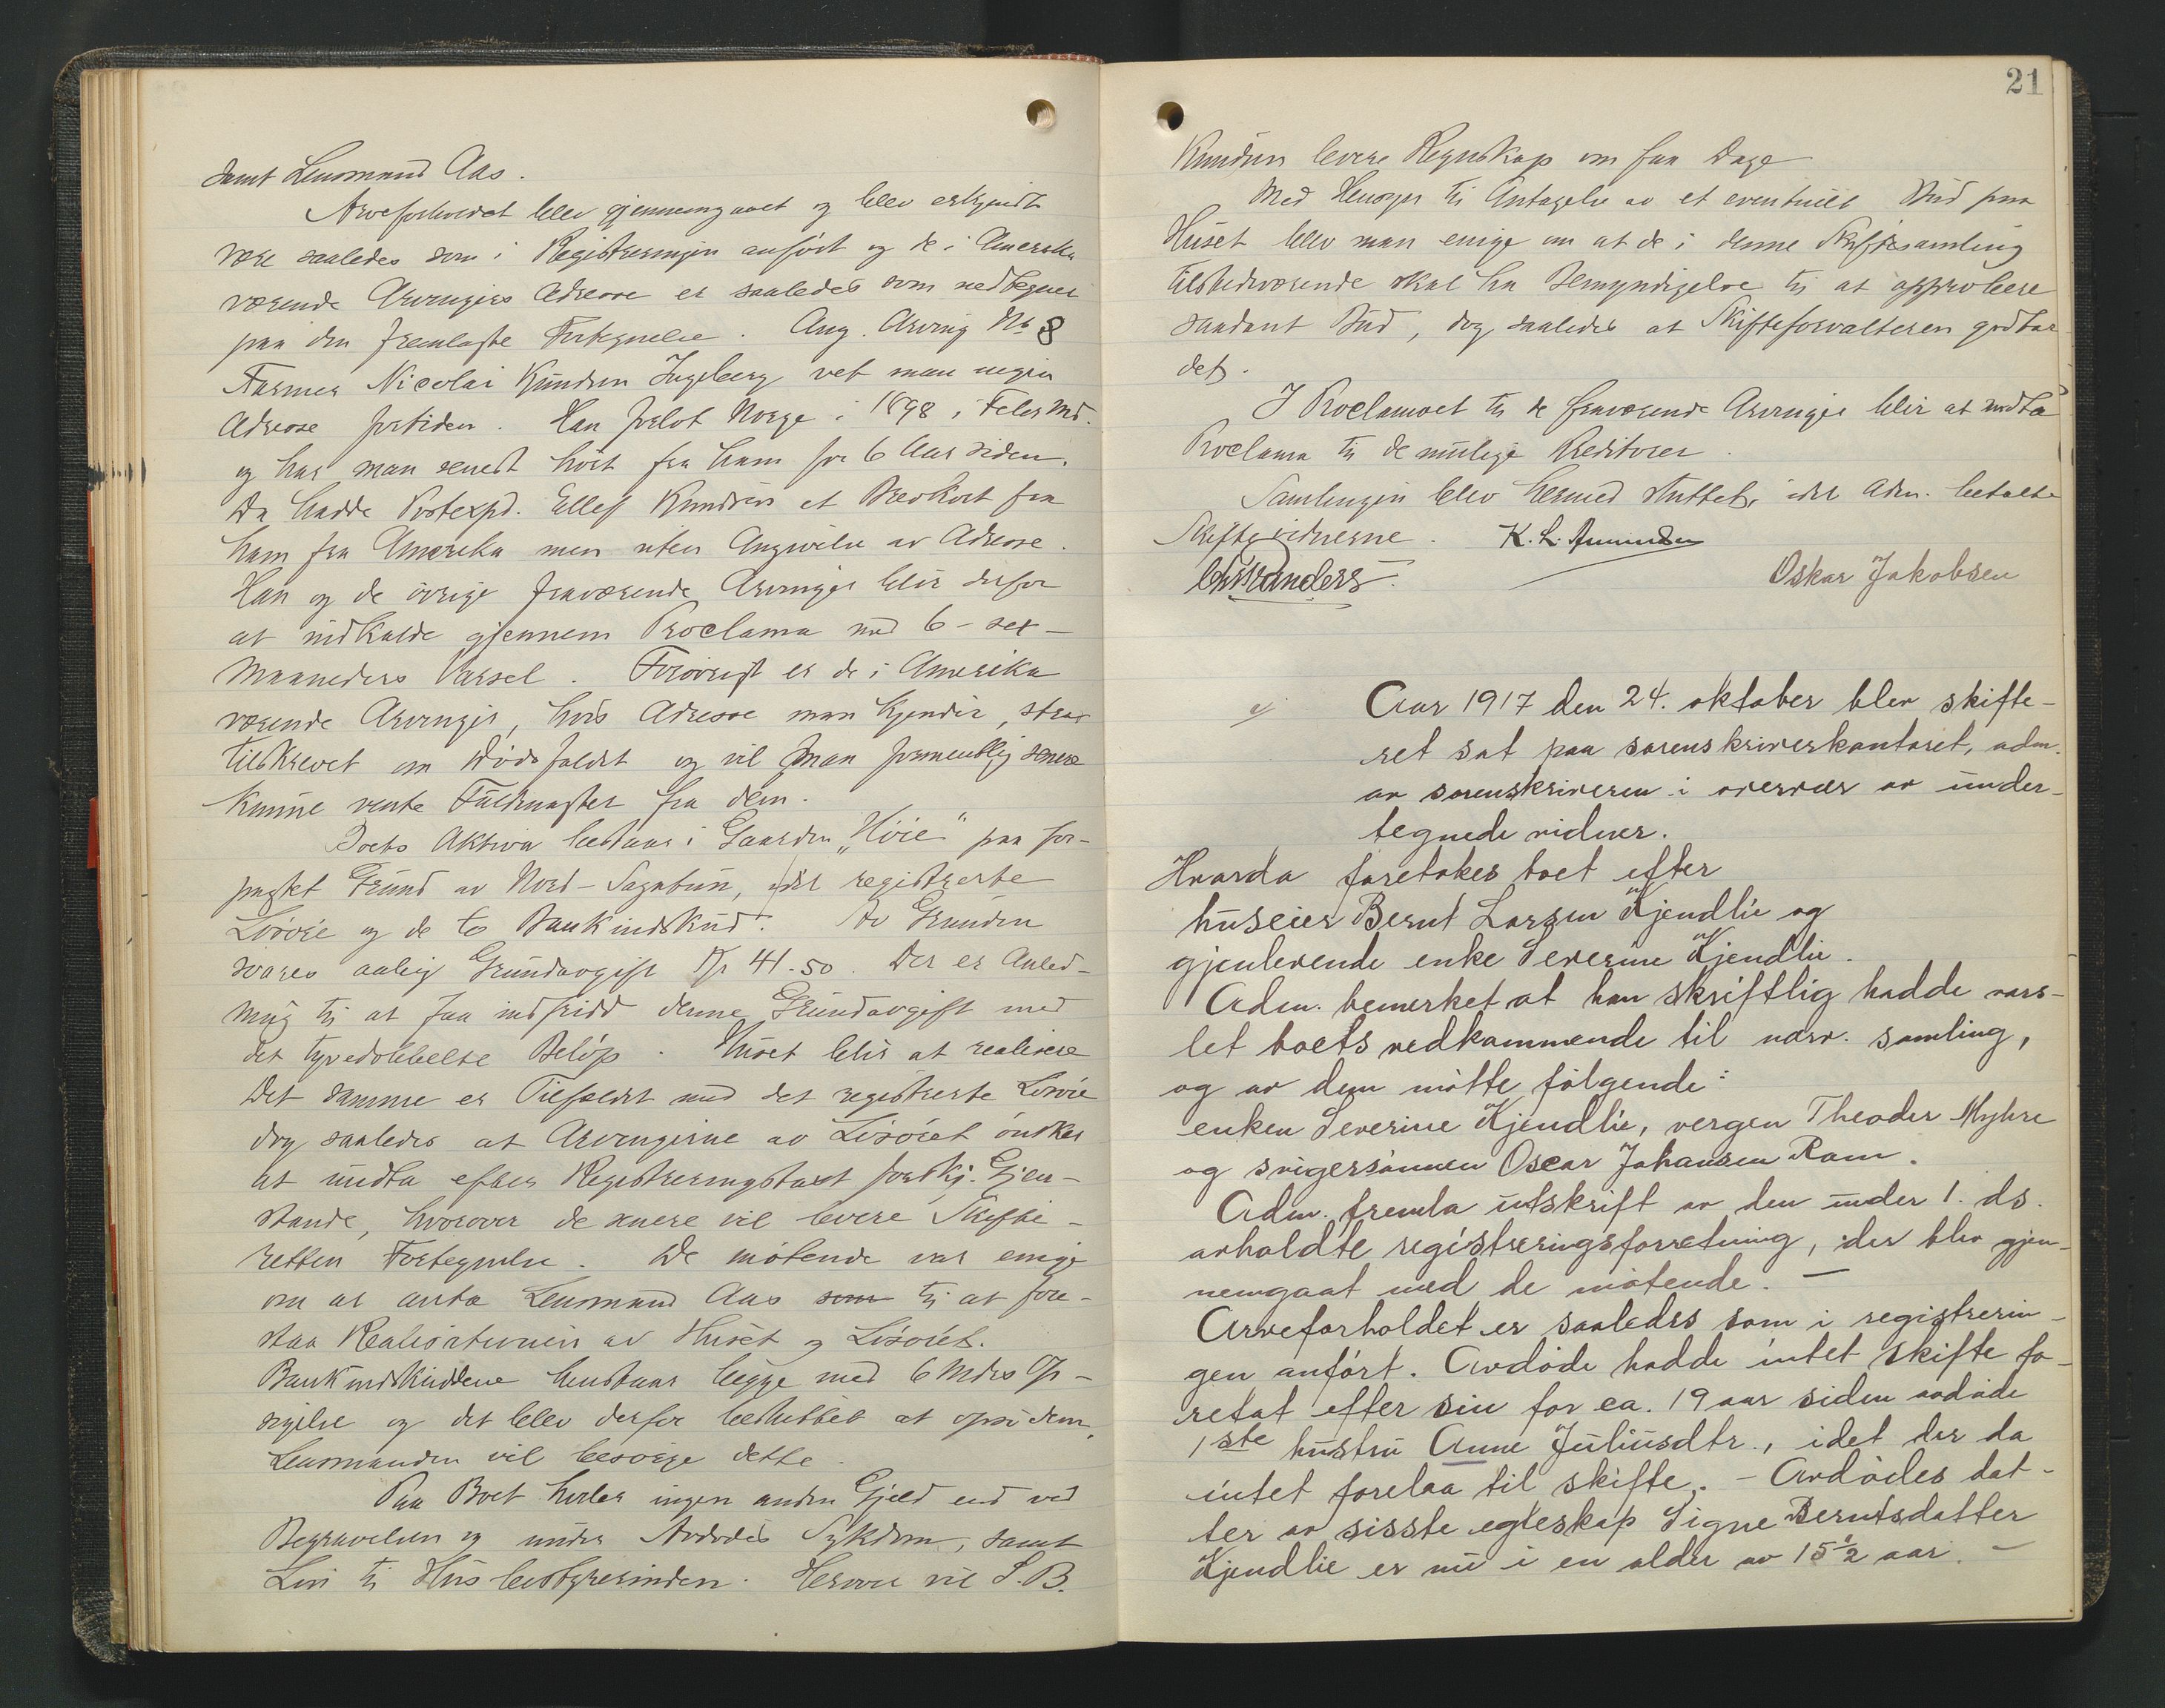 samt Lensmand Aas.
Arveforholdet blev gjennemgaaet og blev erkjendt
være saaledes som i Registreringen anført og de i Amerika
værende Arvingers Adresse er saaledes som nedtegnet
paa den fremlagte Fortegnelse. Ang. Arving No 8
Farmer Nicolai Knudsen Ingeberg vet man ingen
Adresse fortiden. Han forlot Norge i 1898 i Febr Md.
og har man senest hørt fra ham for 6 Aar siden.
Da hadde Postexpd. Ellef Knudsen et Brevkort fra
ham fra Amerika men uten Angivelse av Adresse.
Han og de øvrige fraværende Arvinger blir derfor
at indkalde gjennem Proclama med 6 - sex -
Maaneders Varsel. Forøvrigt er de i Amerika
værende Arvinger, hvis Adresse man kjender, strax
tilskrevet om Dødsfaldet og vil man formentlig senere
kunne vente Fuldmagter fra dem.
Boets Aktiva bestaar i Gaarden "Høie" paa for-
pagtet Grund av Nord-Sagatun, det registrerte
Løsøre og de to Bankindskud. Av Grunden
svares aarlig Grundavgift Kr 41.50. Der er Anled-
ning til at faa indfridd denne Grundavgift med
det tyvedobbelte Beløp. Huset blir at realisere
Det samme er Tilfældet med det registrerte Løsøre
dog saaledes at Arvingerne av Løsøret ønsker
at undta efter Registreringstaxt forskj. Gjen-
stande, hvorover de senere vil levere Skifte-
retten Fortegnelse. De møtende var enige
om at anta Lensmand Aas som til at fore-
staa Realisationen av Huset og Løsøret.
Bankindskuddene henstaar begge med 6 Mdrs Op-
sigelse og det blev derfor besluttet at opsi dem,
Lensmanden vil besørge dette.
Paa Boet hviler ingen anden Gjæld end ved
Begravelsen og under Avdødes Sykdom, samt
Løn til Husbestyrerinden. Herover vil S.B.
21
Knudsen levere Regnskap om faa Dage
Med Hensyn til Antagelse av et eventuelt Bud paa
Huset blev man enige om at de i denne Skiftesamling
tilstedeværende skal ha Bemyndigelse til at approbere
saadant Bud, dog saaledes at Skifteforvalteren godtar
det.
I Proclamaet til de fraværende Arvinger blir at indta
Proclama til de mulige Kreditorer.
Samlingen blev hermed sluttet, idet Adm. betalte
Skiftevidnerne. K. L. Amundsen
Oskar Jakobsen
Aar 1917 den 24. oktober blev skifte-
ret sat paa sorenskriverkontoret, adm.
av sorenskriveren i overvær av under-
tegnede vidner.
Hvorda foretokes boet efter
huseier Bernt Larsen Kjendlie og
gjenlevende enke Severine Kjendlie.
Adm. bemerket at han skriftlig hadde vars-
let boets vedkommende til nærv. samling,
og av dem møtte følgende:
enken Severine Kjendlie, vergen Theodor Myhre
og svigersønnen Oscar Johansen Ram.
Adm. fremla utskrift av den under 1. ds.
avholdte registreringsforretning, der blev gjen-
nemgaat med de møtende. —
Arveforholdet er saaledes som i registrerin-
gen anført. Avdøde hadde intet skifte fo-
retat efter sin for ca. 19 aar siden avdøde
1ste hustru Anne Juliusdtr., idet der da
intet forelaa til skifte. - Avdødes dat-
ter av sisste egteskap Signe Berntsdatter
Kjendlie er nu i en alder av 15 1/2 aar. —